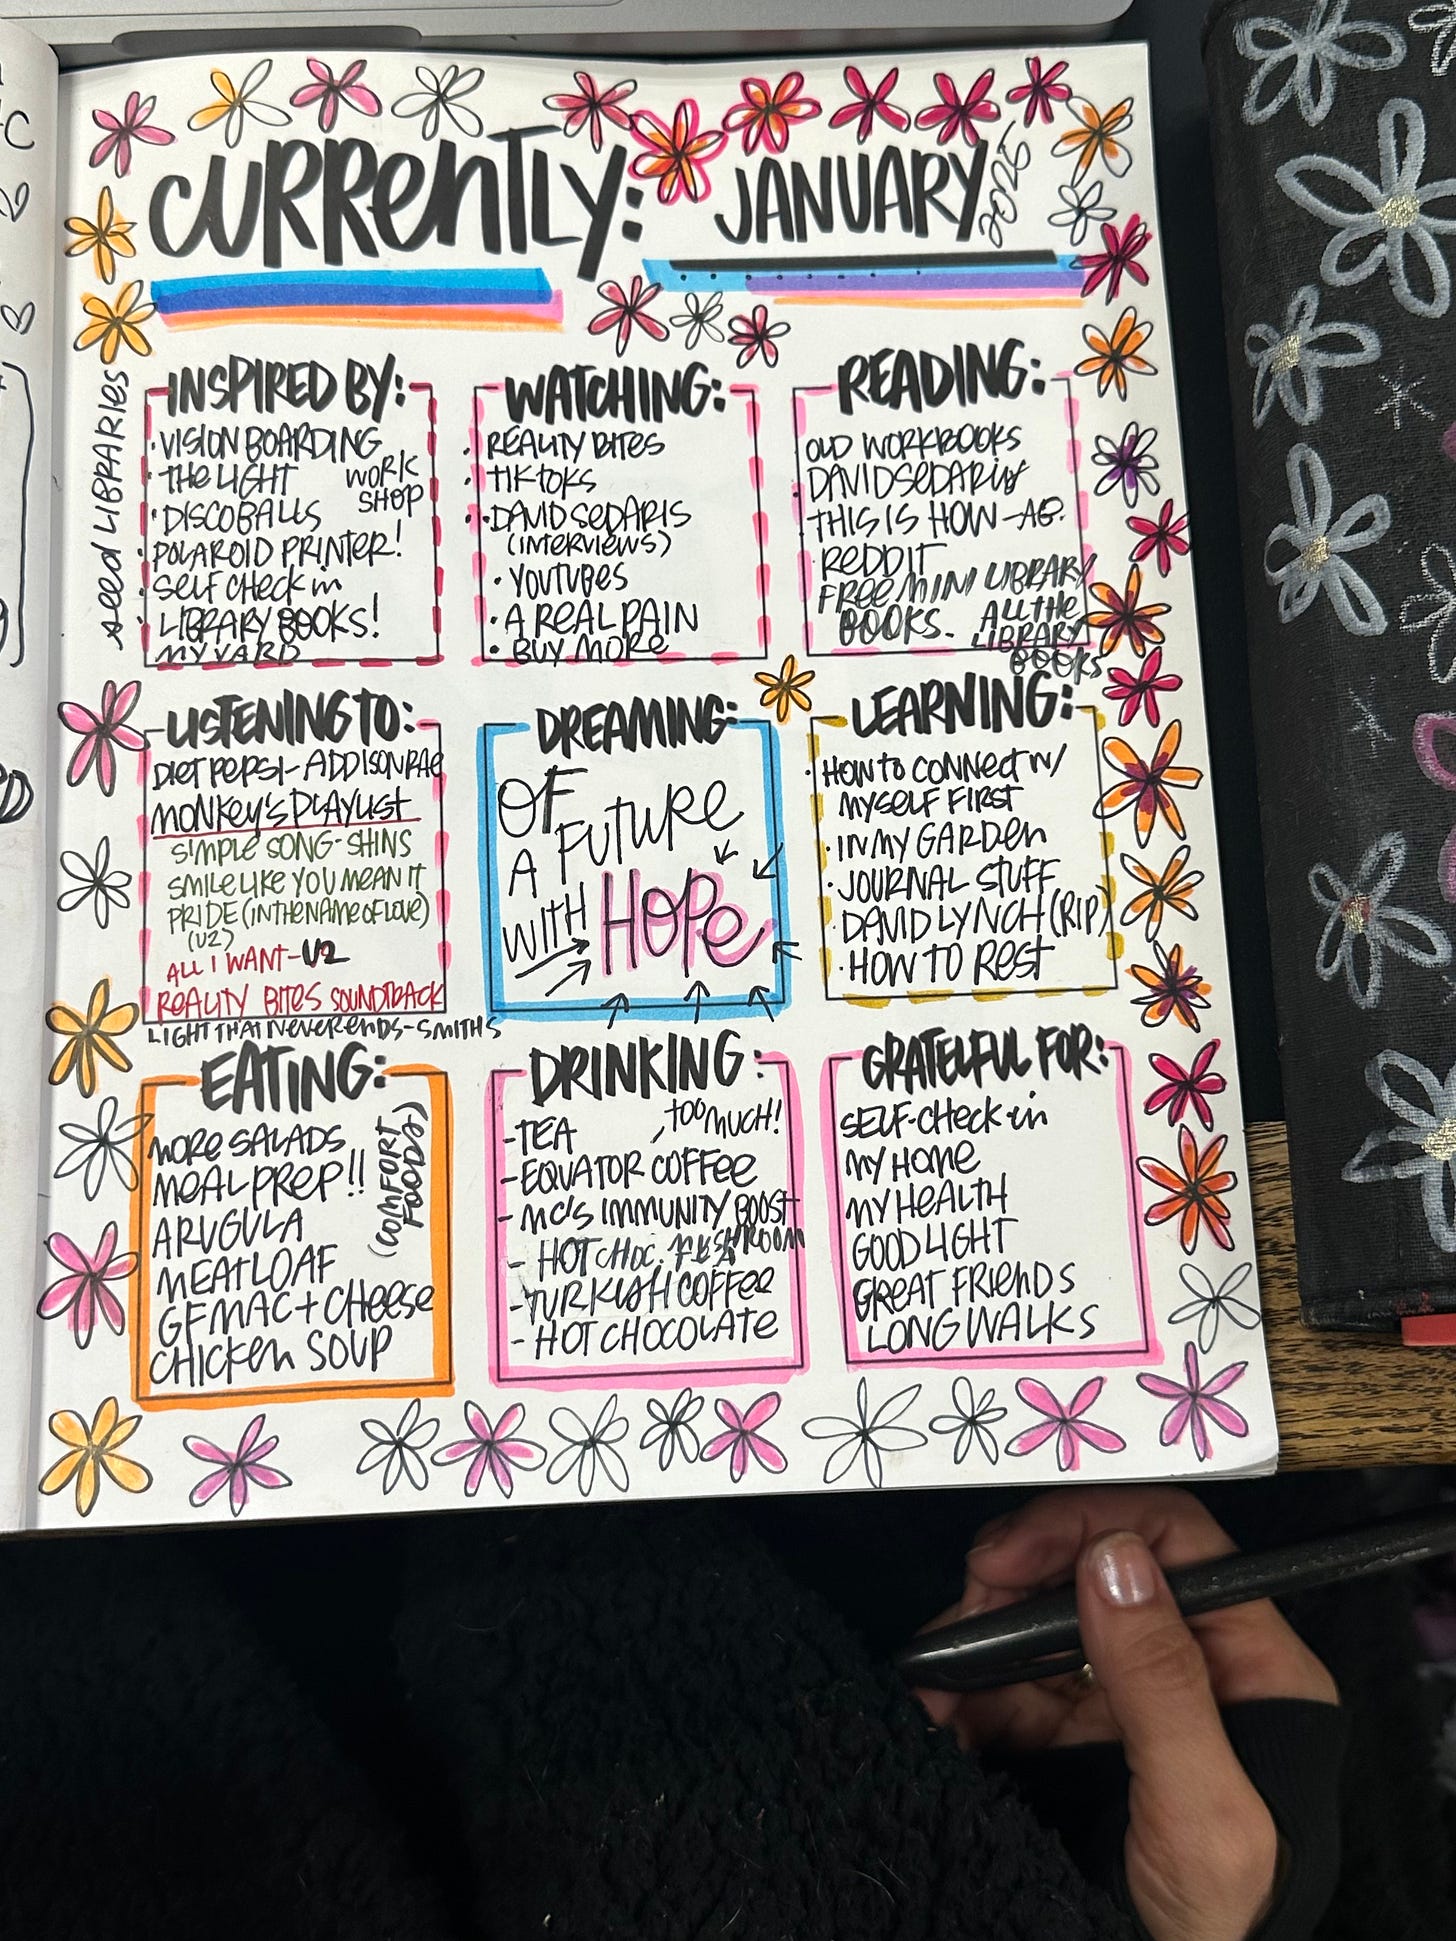 CURRENTLY: JANUARY 2025
INSPIRED BY:
SEED LIBRARIES
• VISION BOARDING
• THE LIGHT WORK SHOP
• DISCOBALLS
• POLAROID PRINTER!
• SELF CHECK in
• LIBRARY BOOKS!
MY YARD
WATCHING:
• REALITY BITES
• TIKTOKS
• DAVID SEDARIS
(INTERVIEWS)
• YOUTUBES
• A REAL PAIN
• BUY MORE
READING:
OLD WORKBOOKS
DAVID SEDARIS
THIS IS HOW - AB.
REDDIT
FREE MINI LIBRARY
BOOKS.
ALL THE
LIBRARY
BOOKS
LISTENING TO:
DIET PEPSI - ADDISON RAE
MONKEY'S PLAYLIST
SIMPLE SONG - SHINS
SMILE LIKE YOU MEAN IT
PRIDE (IN THE NAME OF LOVE)
(U2)
ALL I WANT - U2
REALITY BITES SOUNDTRACK
LIGHT THAT NEVER ENDS - SMITHS
DREAMING:
OF
A FUTURE
WITH HOPE
LEARNING:
• HOW TO CONNECT W/
MYSELF FIRST
• IN MY GARDEN
• JOURNAL STUFF
• DAVID LYNCH (RIP)
• HOW TO REST
EATING:
MORE SALADS
MEAL PREP!!
ARUGULA
MEATLOAF
GF MAC + CHEESE
CHICKEN SOUP
(COMFORT
FOODS)
DRINKING:
TOO MUCH!
- TEA
- EQUATOR COFFEE
- MC'S IMMUNITY BOOST
- HOT CHOC.
- TURKISH COFFEE
- HOT CHOCOLATE
GRATEFUL FOR:
SELF-CHECK-in
MY HOME
MY HEALTH
GOOD LIGHT
GREAT FRIENDS
LONG WALKS